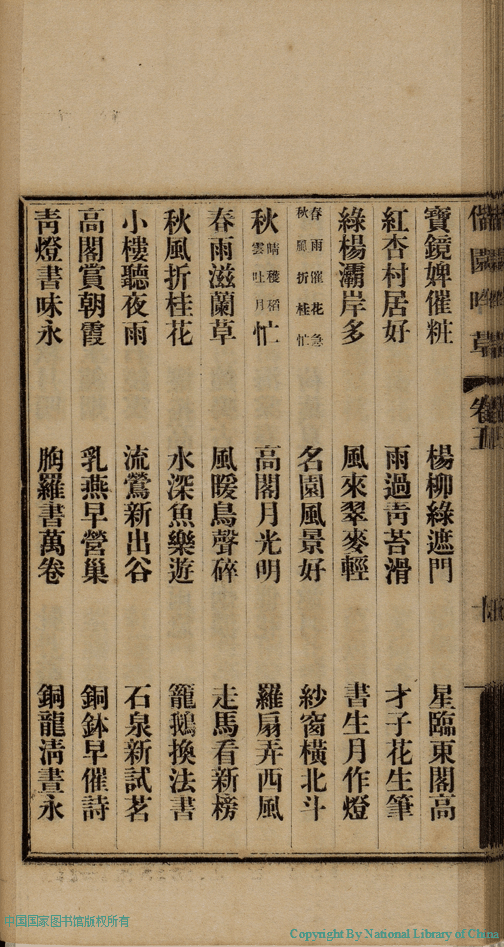 寶鏡婢催粧　楊柳綠遮門　星臨東閣高
紅杏村居好　雨過靑苔滑　才子花生筆
綠楊灞岸多　風來翠麥輕　書生月作燈
春雨催花急　秋風折桂忙　名園風景好　紗窗橫北斗
秋晴穫稻雲吐月忙　高閣月光明　羅扇弄西風
春雨滋蘭草　風暖鳥聲碎　走馬看新榜
秋風折桂花　水深魚樂遊　籠鵝換法書
小樓聽夜雨　流鶯新出谷　石泉新試茗
高閣賞朝霞　乳燕早營巢　銅鉢早催詩
靑燈書味永　胸羅書萬卷　銅龍淸晝永
卷五
中国国家图书馆版权所有
Copyright By National Library of China